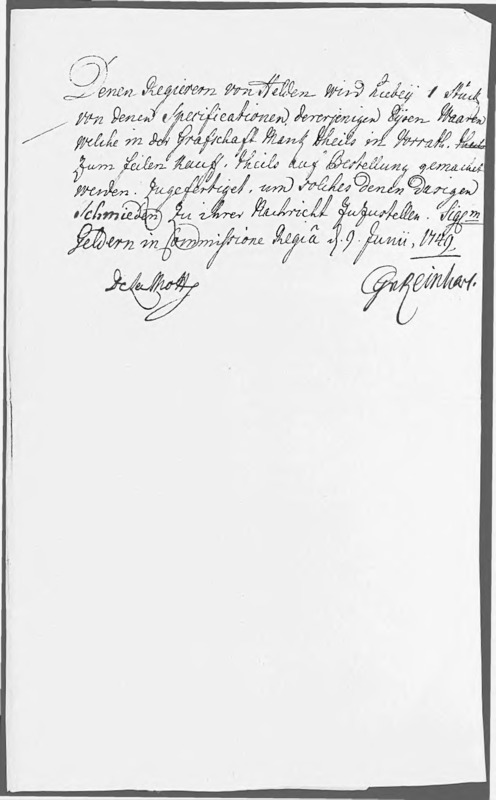 Denen Regierern von Helden wird hiebeÿ 1 Stück
von denen Specificationen dererjenigen Eÿsen Waaren
welche in der Grafschaft Marck theils in Vorrath
zum feilen Kauf, theils auf Bestellung gemachet
werden, zugefertiget, um solches denen dasigen
Schmieden zu ihrer Nachricht zuzustellen. Sigm
Geldern in Commissione Regiâ d. 9. Junii, 1749.
De la Motte Reinhart.